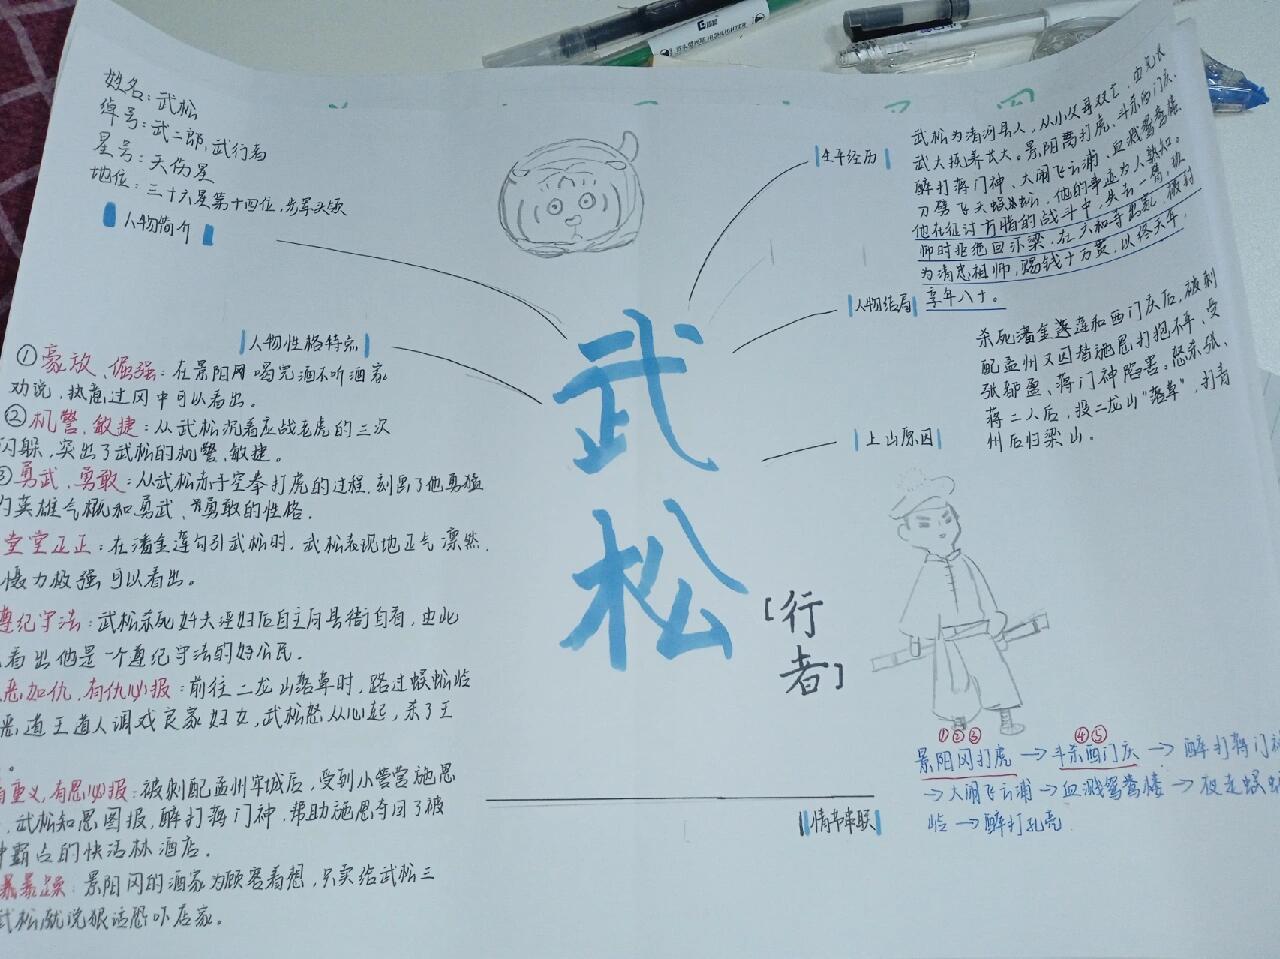 姓名：武松
绰号：武二郎，武行者
星号：天伤星
地位：三十六星第十四位，步军头领
人物简介
人物性格特点
①豪放、倔强：在景阳冈喝完酒不听酒家
劝说，执意过冈中可以看出。
②机警、敏捷：从武松沉着应战老虎的三次
闪躲，突出了武松的机警、敏捷。
③勇武、勇敢：从武松赤手空拳打虎的过程，刻画了他勇猛
的英雄气概和勇武、勇敢的性格。
堂堂正正：在潘金莲勾引武松时，武松表现地正气凛然，
力极强可以看出。
遵纪守法：武松杀死奸夫淫妇后自主向县衙自首，由此
看出他是一个遵纪守法的好公民。
恶如仇，有仇必报：前往二龙山落草时，路过蜈蚣岭
恶道王道人调戏良家妇女，武松怒从心起，杀了王
。
重义，有恩必报：被刺配孟州牢城后，受到小管营施恩
，武松知恩图报，醉打蒋门神，帮助施恩夺回了被
霸占的快活林酒店。
暴躁：景阳冈的酒家为顾客着想，只卖给武松三
武松就说狠话恐吓店家。
武松
「行者」
生平经历
武松为清河县人，从小父母双亡，由兄长
武大抚养长大。景阳冈打虎、斗杀西门庆、
醉打蒋门神、大闹飞云浦、血溅鸳鸯楼、
他的事迹为人熟知。
他在征讨方腊的战斗中，失去一臂，班
师时拒绝回汴梁，在六和寺出家，被封
为清忠祖师，赐钱十万贯，以终天年，
享年八十。
人物结局
杀死潘金莲和西门庆后，被刺
配孟州又因替施恩打抱不平、受
张都监、蒋门神陷害。怒杀张、
蒋二人后，投二龙山“落草”，打青
州后归梁山。
上山原因
①②③ ④⑤
景阳冈打虎→斗杀西门庆→醉打蒋门神
→大闹飞云浦→血溅鸳鸯楼→夜走蜈蚣
岭→醉打孔亮
情节串联